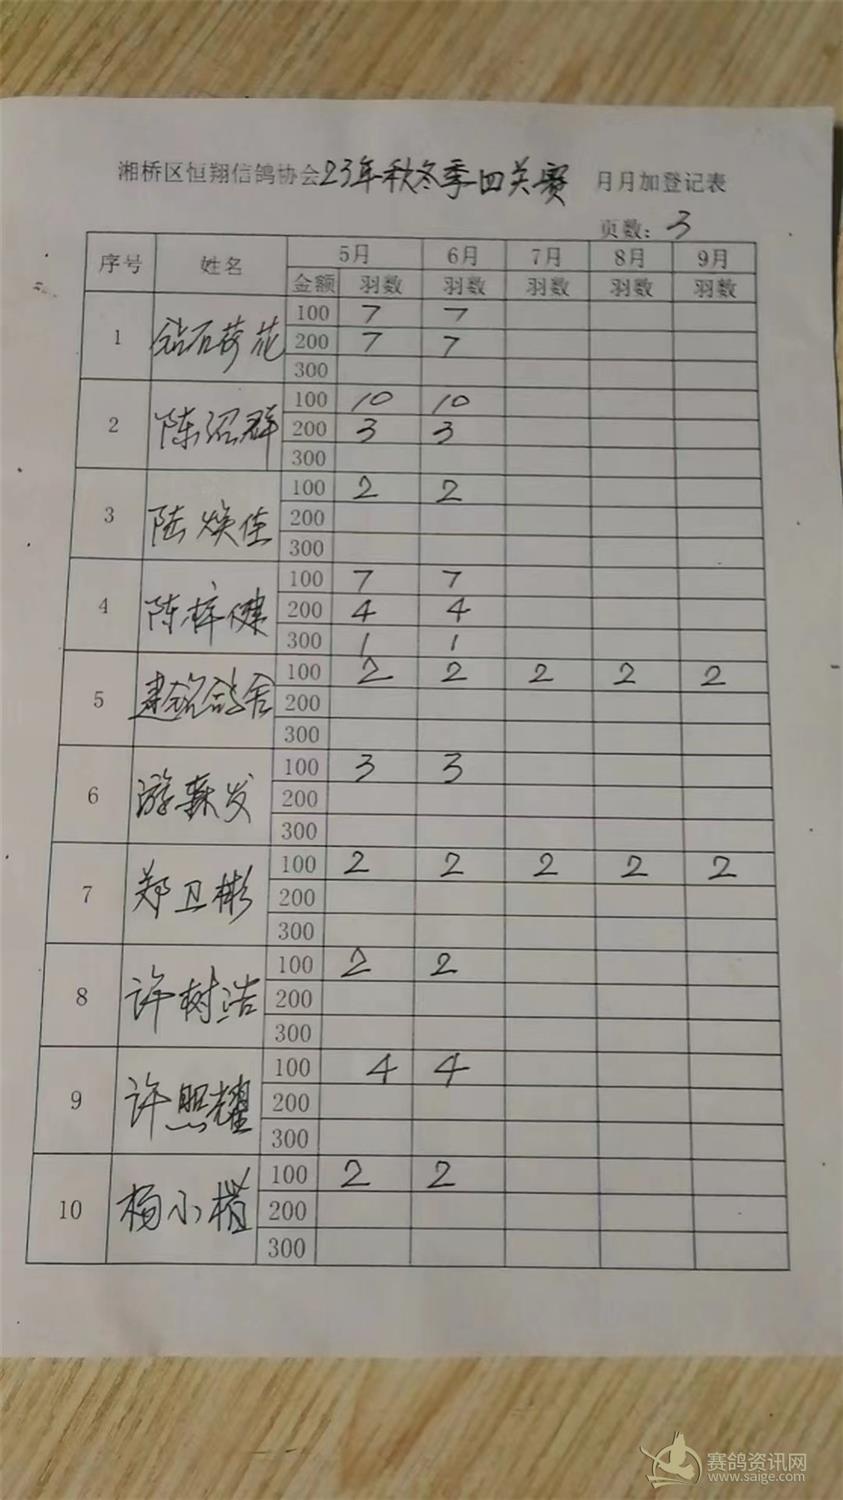 湘桥区恒翔信鸽协会23年秋冬季四关赛 月月加登记表
页数: 3
序号 姓名 5月 6月 7月 8月 9月
金额 羽数 羽数 羽数 羽数 羽数
1 钻石荷花 100 7 7
200 7 7
300
2 陈沼群 100 10 10
200 3 3
300
3 陆焕佳 100 2 2
200
300
4 陈梓健 100 7 7
200 4 4
300 1 1
5 建铭鸽舍 100 2 2 2 2 2
200
300
6 游森发 100 3 3
200
300
7 郑卫彬 100 2 2 2 2 2
200
300
8 许树浩 100 2 2
200
300
9 许照耀 100 4 4
200
300
10 杨小 100 2 2
200
300
赛鸽资讯网
www.saige.com